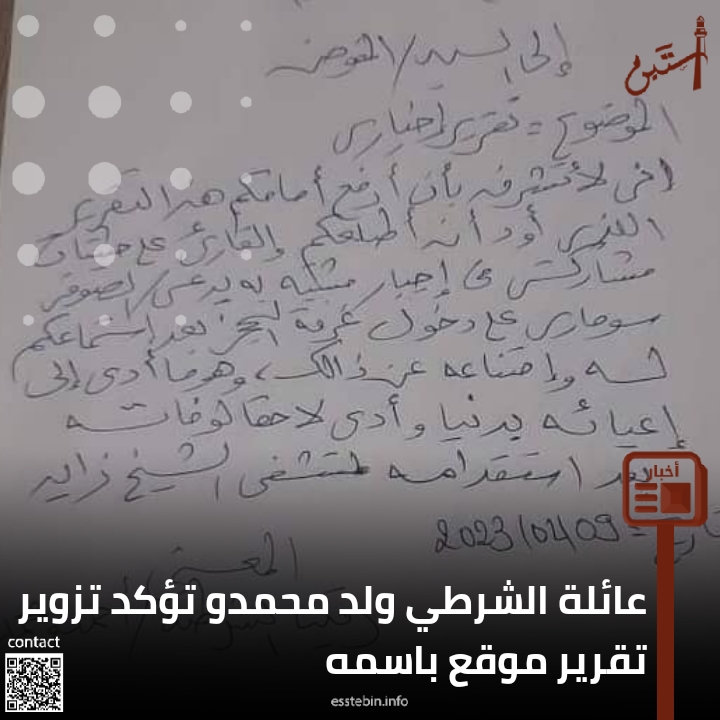 استبين
إلى السيد/المفوض
الموضوع = تقرير إخباري
إني لأتشرف بأن أرفع أمامكم هذا التقرير
الذي أود أن أطلعكم والقارئ على
مشاركتي في إجبار مشتبه به يدعى/الصوفي
سوماري على دخول غرفة الحجز بعد استماعكم
له وامتناعه عن ذالك، وهو ما أدى إلى
إعيائه بدنيا وأدى لاحقا لوفاته
بعد استقدامه لمستشفى الشيخ زايد
أخبار
2023/02/09
عائلة الشرطي ولد محمدو تؤكد تزوير
تقرير موقع باسمه
contact
esstebin.info